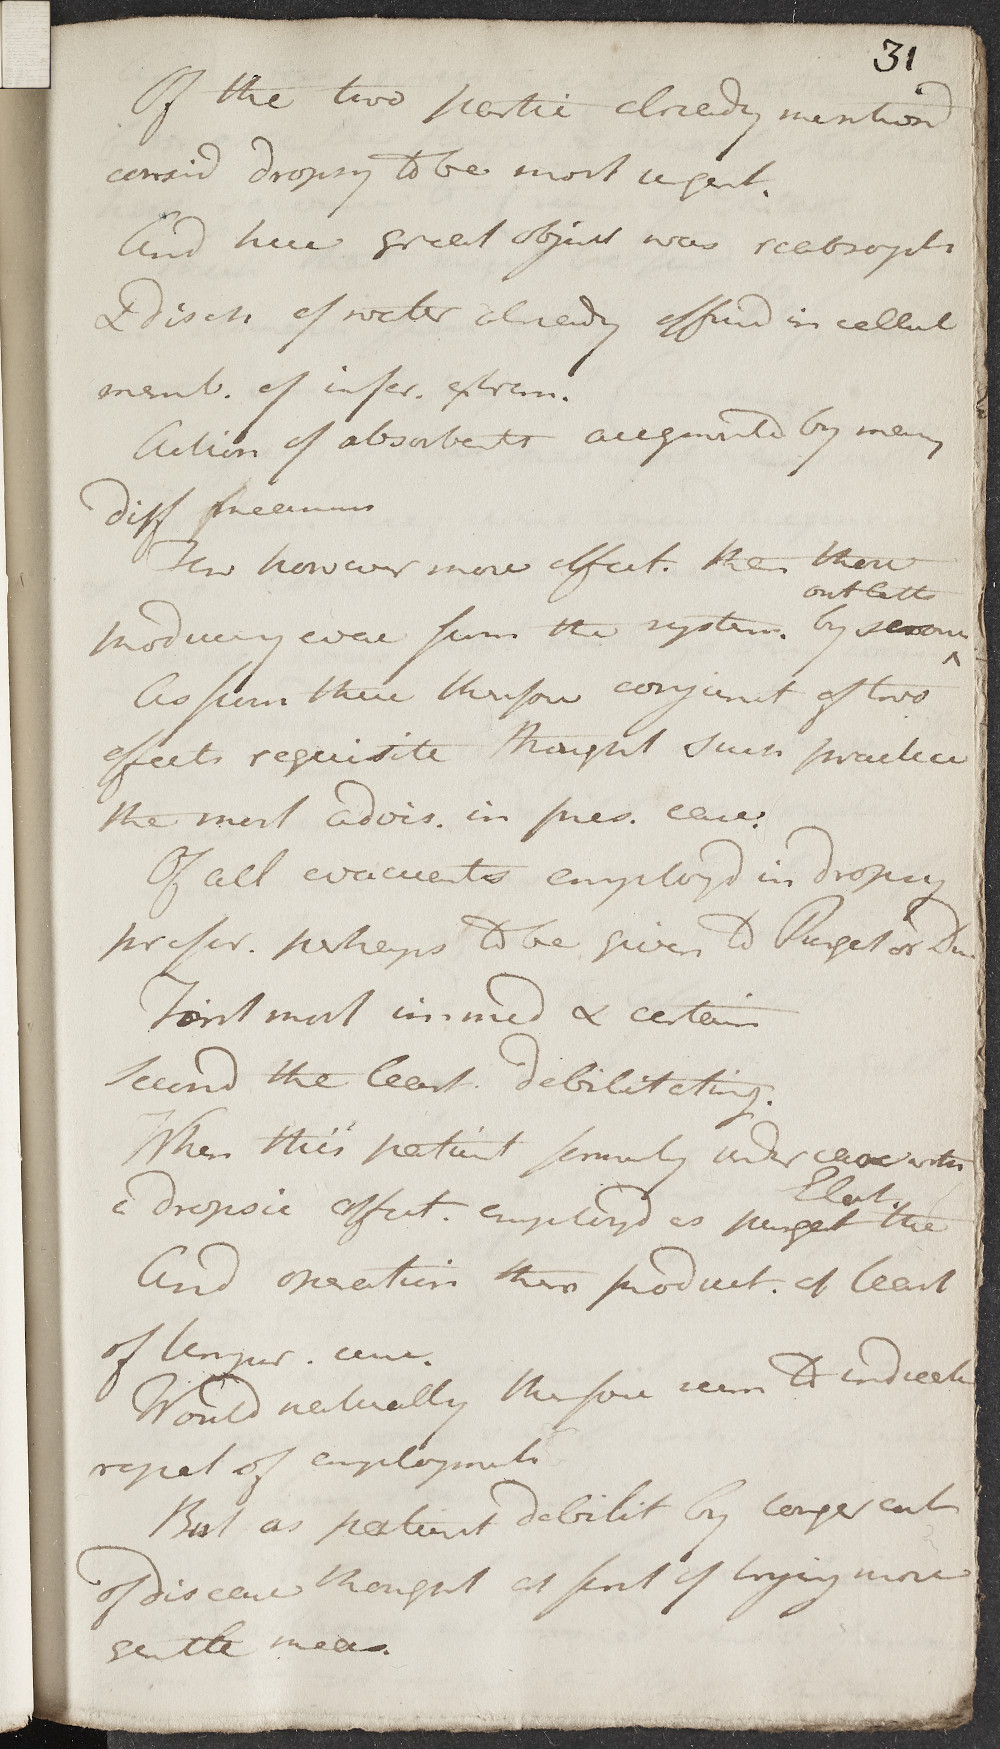 31
Of the two partic already mentiond
consid dropsy to be most urgent.
And here great object was reabsopt
& disch of water already effused in cellul
memb. of infer. extrem.
Action of absorbents augmentd by many
diff
Few however more effect. than those
outletts
producing evac from the system. by
As from these therefore conjunct of two
effects requisite thought such practice
the most advis. in pres. case.
Of all evacuents employd in dropsy
prefer. perhaps to be given to Purgat or Diu
First most immed & certain
Second the least debilitating.
When this patient formerly under care with
Elat.
a dropsic affect. employd as purgat the
And operation then product. at least
of tempor. cure.
Would naturally therefore seem to indicate
repet of employment
But as patient debilit by longer cont
of disease thought at first of trying more
gentle meas.